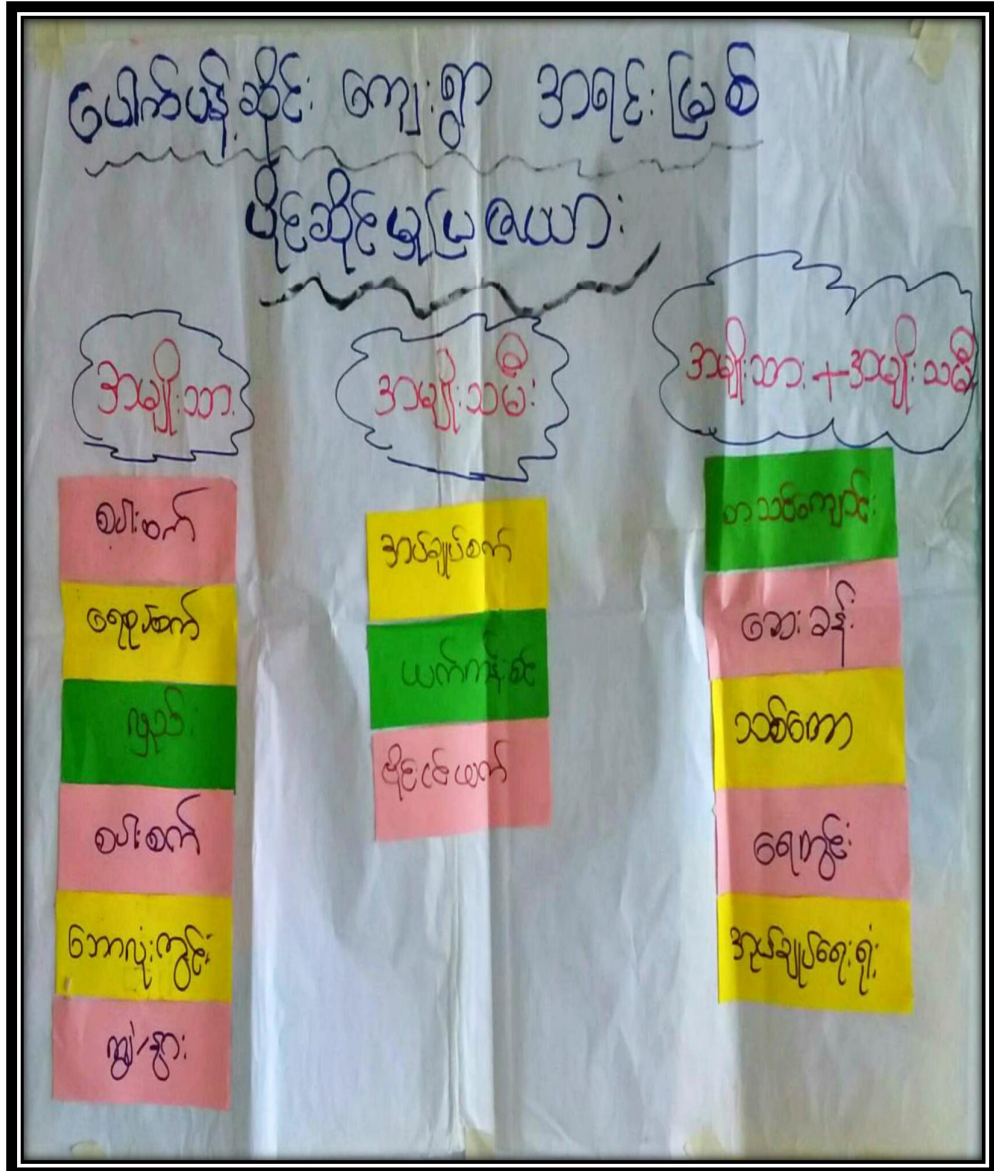 ပေါက်ပန်ဆိုင်း ကျေးရွာ အရင်းမြစ်
ပိုင်ဆိုင်မှုပြဇယား
အမျိုးသား
စပါးစက်
ရေစုပ်စက်
လှည်း
စပါးစက်
ဘောလုံးကွင်း
ကျွဲ/နွား
အမျိုးသမီး
အပ်ချုပ်စက်
ယက်ကန်းစင်
ဗိုင်းငင်စက်
အမျိုးသား+အမျိုးသမီး
စာသင်ကျောင်း
ဆေးခန်း
သစ်တော
ရေတွင်း
အုပ်ချုပ်ရေးရုံး